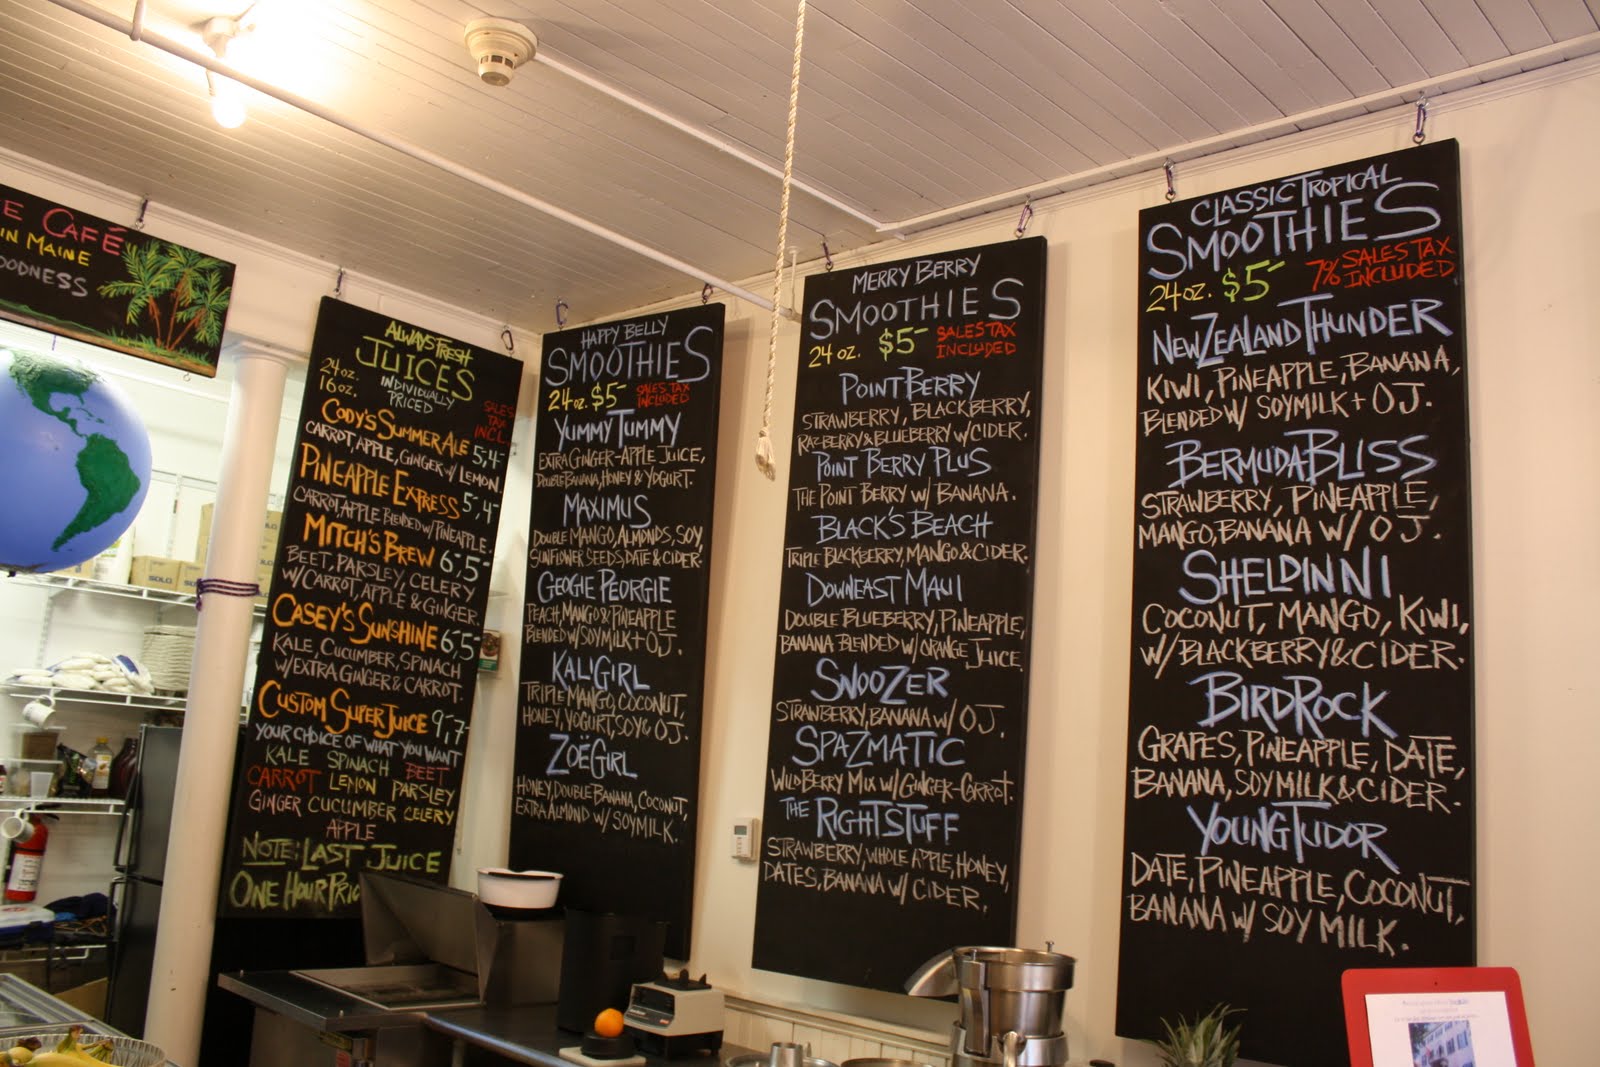 E CAFÉ
IN MAINE
ALWAYS FRESH
JUICES
24 oz.
16 oz.
INDIVIDUALLY
PRICED
SALES
TAX
INCL
CODY'S SUMMER ALE 5,4-
CARROT, APPLE, GINGER W/ LEMON.
PINEAPPLE EXPRESS 5,4-
CARROT, APPLE BLENDED W/ PINEAPPLE.
MITCH'S BREW 6,5-
BEET, PARSLEY, CELERY
W/ CARROT, APPLE & GINGER.
CASEY'S SUNSHINE 6,5-
KALE, CUCUMBER, SPINACH
W/ EXTRA GINGER & CARROT.
CUSTOM SUPER JUICE 9,7-
YOUR CHOICE OF WHAT YOU WANT
KALE SPINACH BEET
CARROT LEMON PARSLEY
GINGER CUCUMBER CELERY
APPLE
NOTE: LAST JUICE
ONE HOUR PRIO
HAPPY BELLY
SMOOTHIES
24 oz. $5- SALES TAX
INCLUDED
YUMMY TUMMY
EXTRA GINGER-APPLE JUICE,
DOUBLE BANANA, HONEY & YOGURT.
MAXIMUS
DOUBLE MANGO, ALMONDS, SOY,
SUNFLOWER SEEDS, DATE & CIDER.
GEOGIE PEORGIE
PEACH, MANGO & PINEAPPLE
BLENDED W/ SOYMILK + OJ.
KALIGIRL
TRIPLE MANGO, COCONUT,
HONEY, YOGURT, SOY & OJ.
ZOËGIRL
HONEY, DOUBLE BANANA, COCONUT,
EXTRA ALMOND W/ SOYMILK.
MERRY BERRY
SMOOTHIES
24 oz. $5- SALES TAX
INCLUDED
POINT BERRY
STRAWBERRY, BLACKBERRY,
RAZ-BERRY & BLUEBERRY W/ CIDER.
POINT BERRY PLUS
THE POINT BERRY W/ BANANA.
BLACK'S BEACH
TRIPLE BLACKBERRY, MANGO & CIDER.
DOWNEAST MAUI
DOUBLE BLUEBERRY, PINEAPPLE,
BANANA BLENDED W/ ORANGE JUICE.
SNOOZER
STRAWBERRY, BANANA W/ OJ.
SPAZMATIC
WILDBERRY MIX W/ GINGER-CARROT.
THE RIGHT STUFF
STRAWBERRY, WHOLE APPLE, HONEY,
DATES, BANANA W/ CIDER.
CLASSIC TROPICAL
SMOOTHIES
24 oz. $5- 7% SALES TAX
INCLUDED
NEW ZEALAND THUNDER
KIWI, PINEAPPLE, BANANA,
BLENDED W/ SOYMILK + OJ.
BERMUDA BLISS
STRAWBERRY, PINEAPPLE,
MANGO, BANANA W/ OJ.
SHELDINNI
COCONUT, MANGO, KIWI,
W/ BLACKBERRY & CIDER.
BIRDROCK
GRAPES, PINEAPPLE, DATE,
BANANA, SOYMILK & CIDER.
YOUNG TUDOR
DATE, PINEAPPLE, COCONUT,
BANANA W/ SOY MILK.
SOLO